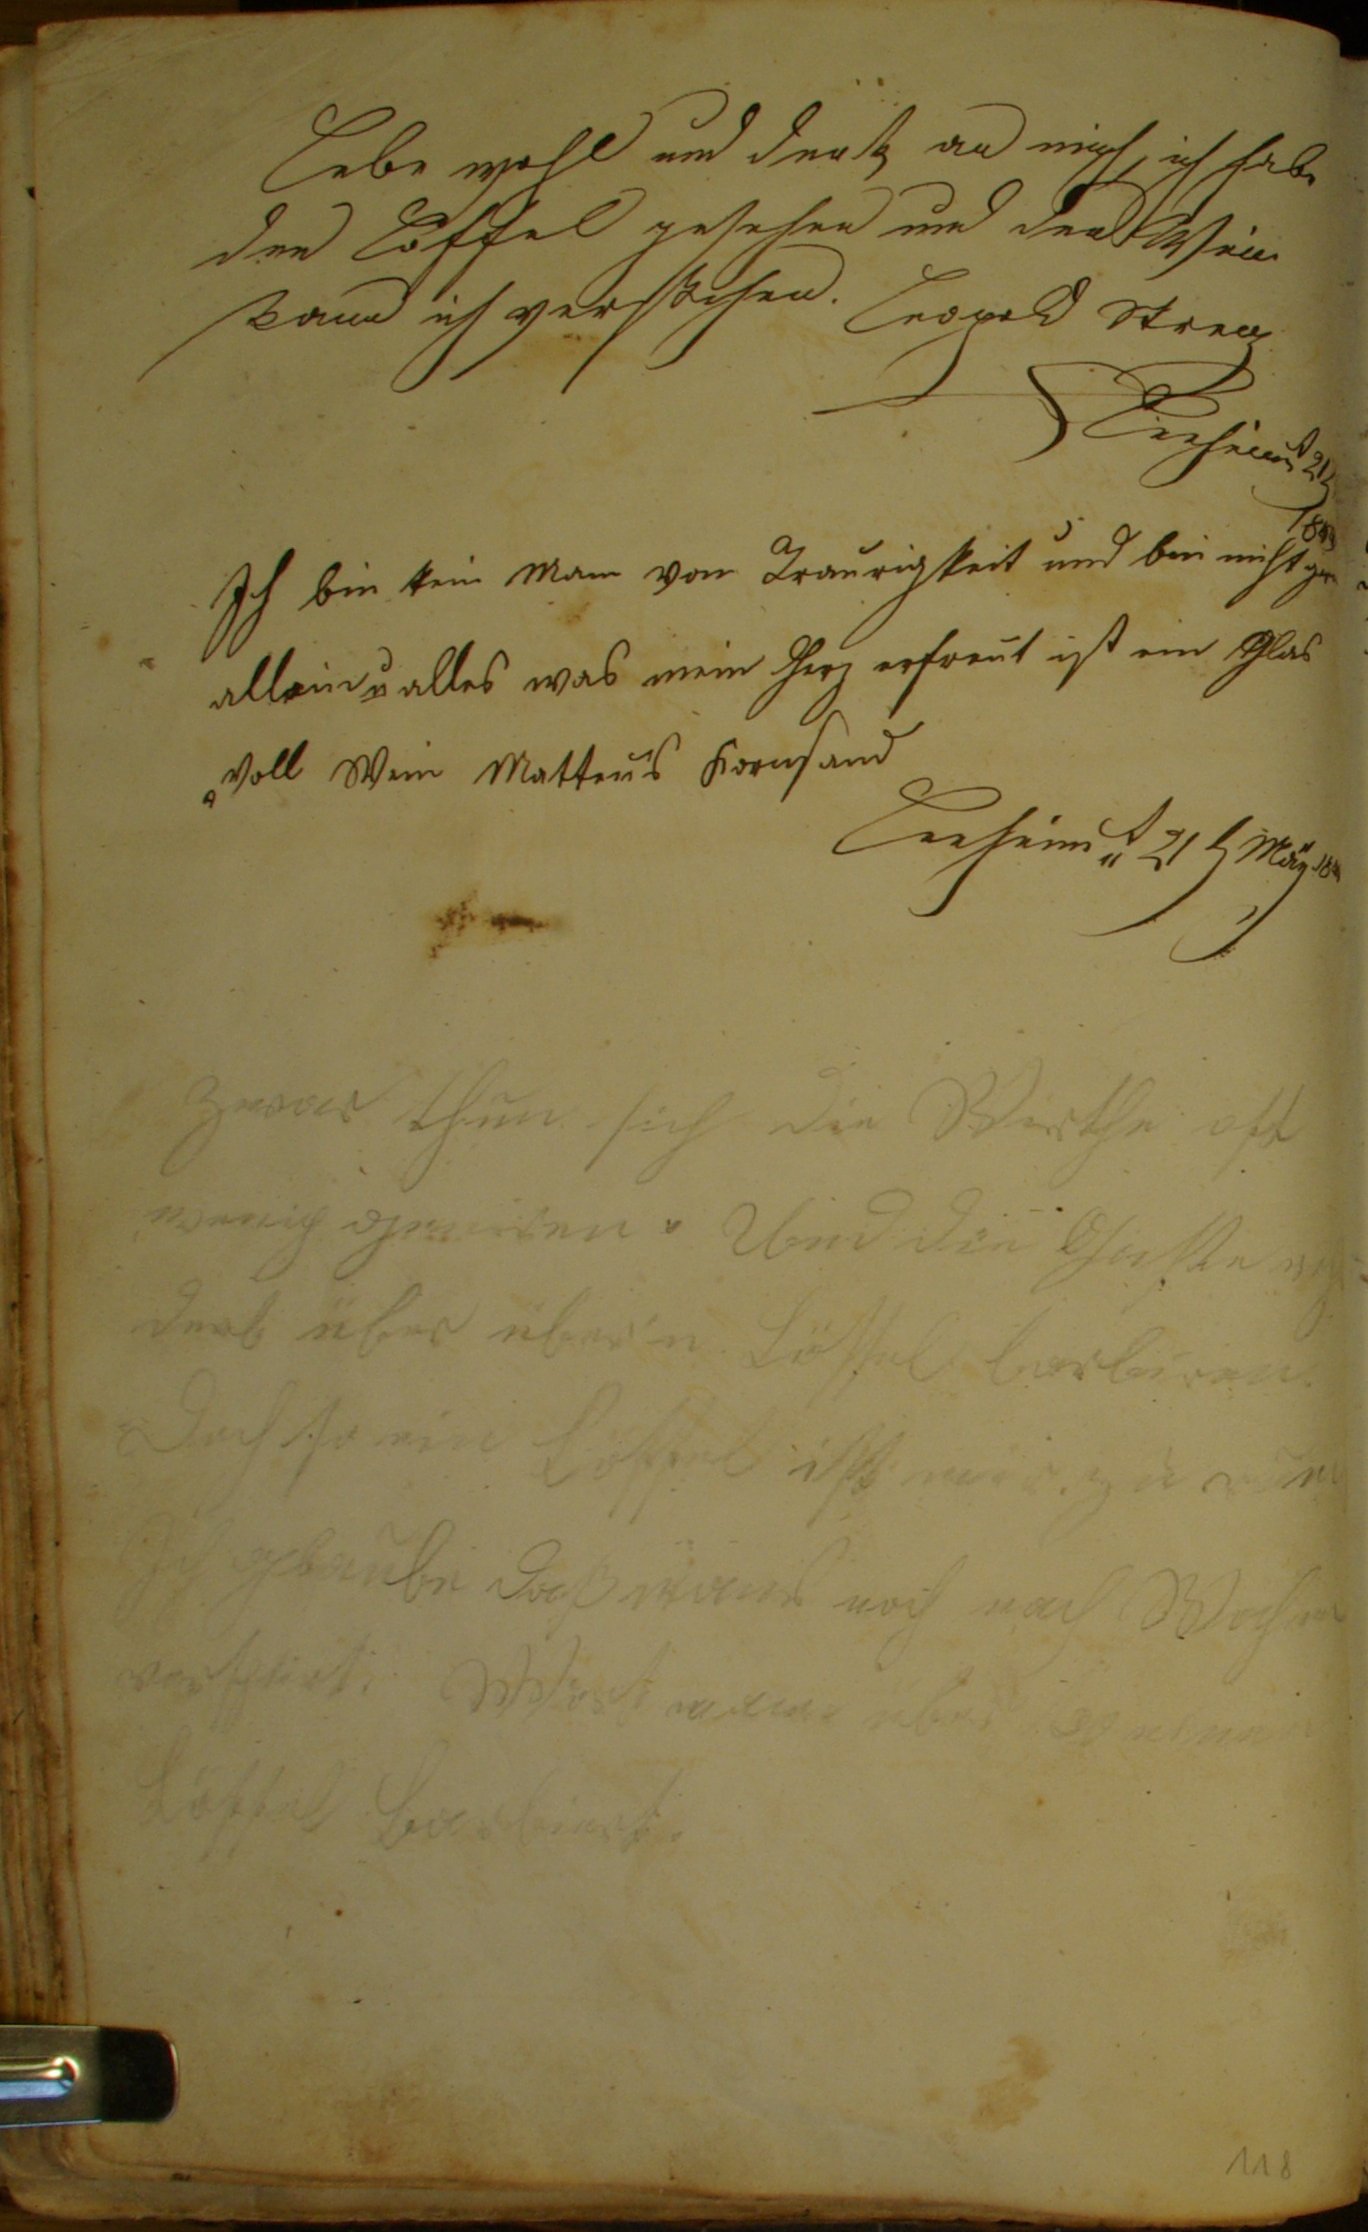 Lebe wohl und denk an mich, ich habe
den Löffel gesehen und den Wein
kann ich verstehen. Leopold Streng
Seeheim d 21t
184
Ich bin kein Mann von Traurigkeit und bin nicht gern
allein u alles was mein Herz erfreut ist ein Glas
voll Wein Matteus Kornsand
Seeheim d 21t May 184
Zwar thun sich die Wirthe oft
wenig geniren. Und die Gäste
derb über über'n Löffel barbiren.
Doch so ein Löffel ist mir zu
Ich glaube daß mans noch nach Wochen
verspürt. Wird man über
Löffel barbirt.
118